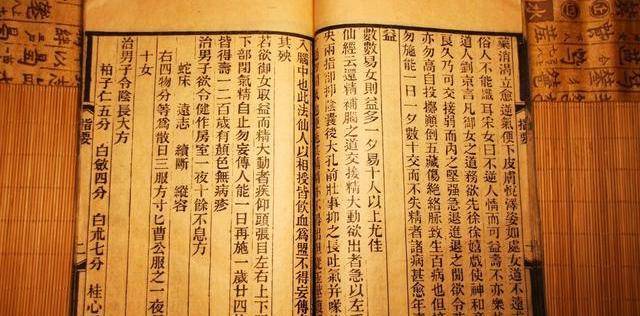 藥消渴立愈逆氣便下皮膚恆澤姿如處女道不遠
俗人不能識耳宋女曰不逆人情而可益壽不亦樂
道人劉京言凡御女之道務欲先徐徐嬉戲使神和意
良久乃可交接弱而內之堅强急退進退之間欲令
亦勿高自投擲顛倒五藏傷絶絡脉致生百病也但
勿施能一日一夕數十交而不失精者諸病甚愈年
益
數數易女則益多一夕易十人以上尤佳
仙經云還精補腦之道交接精大動欲出者急以左
央兩指却抑陰囊後大孔前壯事抑之長吐氣并
入腦中也此法仙人以相授皆飲血爲盟不得妄傳
其殃
若欲御女取益而精大動者疾仰頭張目左右上下
下部閉氣精自止勿妄傳人能一日再施一歲廿四
皆得壽一二百歲有顏色無病疹
治男子欲令健作房室一夜十餘不息方
蛇床 遠志 續斷 縱容
右四物分等爲散日三服方寸匕曹公服之一夜
十女
治男子令陰長大方
柏子仁五分 白斂四分 白朮七分 桂心
指要
指要